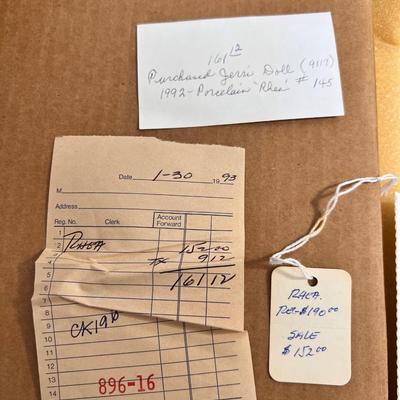 161 12
Purchased Jerri Doll (9117)
1992 - Porcelain "Rhea" # 145
Date 1-30 1993
M
Address
Reg. No. Clerk Account Forward
1
2 RHEA 152.00
3 Tx 9 12
4
5 161 12
6
7
8
9 CK 190
10
11
12
13
14
896-16
RHEA.
REG-$190 00
SALE
$152 00